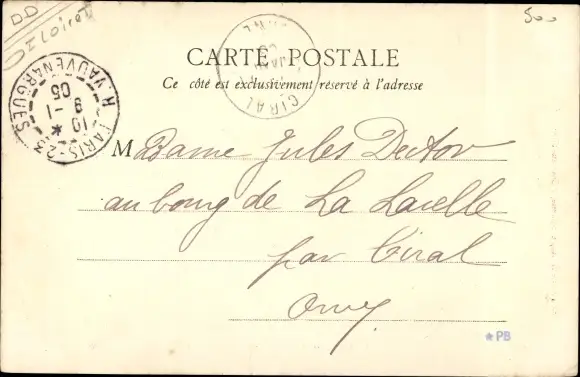 DD
500
CARTE POSTALE
Ce côté est exclusivement réservé à l'adresse
CIRAL
PARIS-23
R. VAUVENARGUES
10 *
9 -1
05
Madame Jules
au bourg de La Lacelle
par Ciral
Orne
*PB